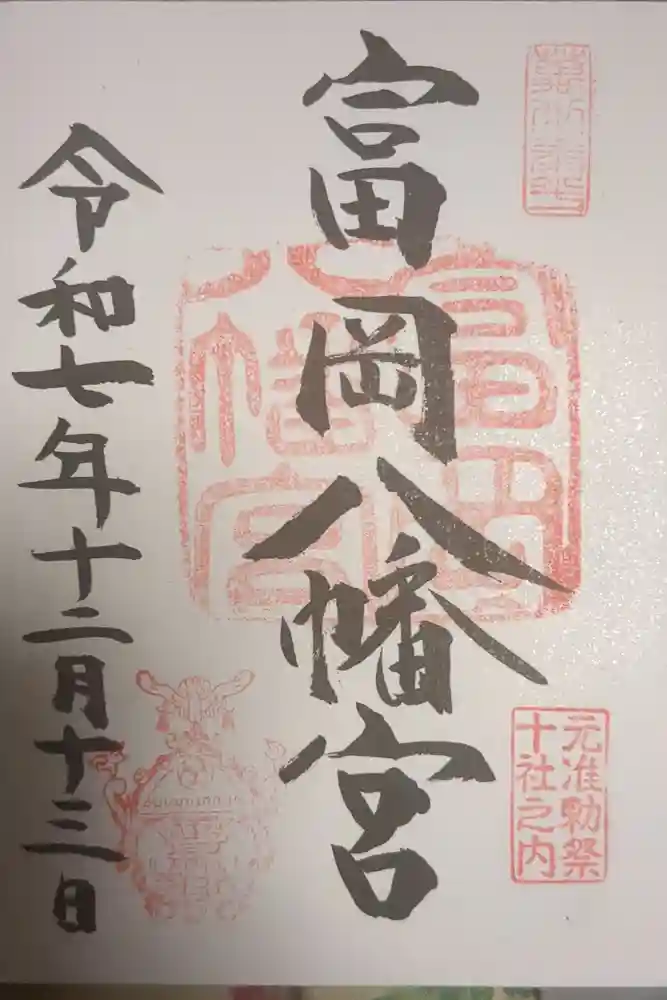 富岡八幡宮
元准勅祭
十社之内
富岡
八幡宮
令和七年十二月十三日